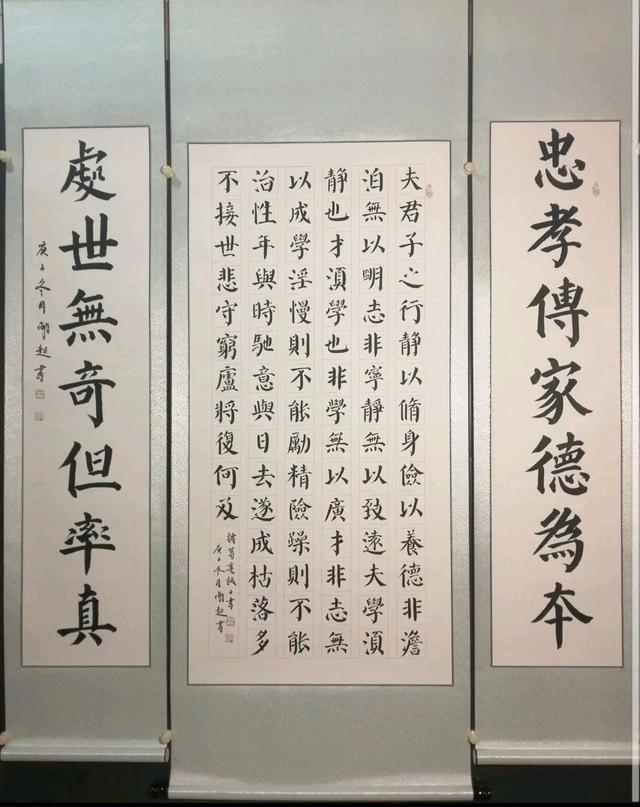 忠孝傳家德為本
夫君子之行静以脩身儉以養德非澹
泊無以明志非寧靜無以致遠夫學湏
静也才湏學也非學無以廣才非志無
以成學淫慢則不能勵精險躁則不能
治性年與時馳意與日去遂成枯落多
不接世悲守窮廬將復何及
諸葛亮誡子書
庚子冬月書
處世無奇但率真
庚子冬月書